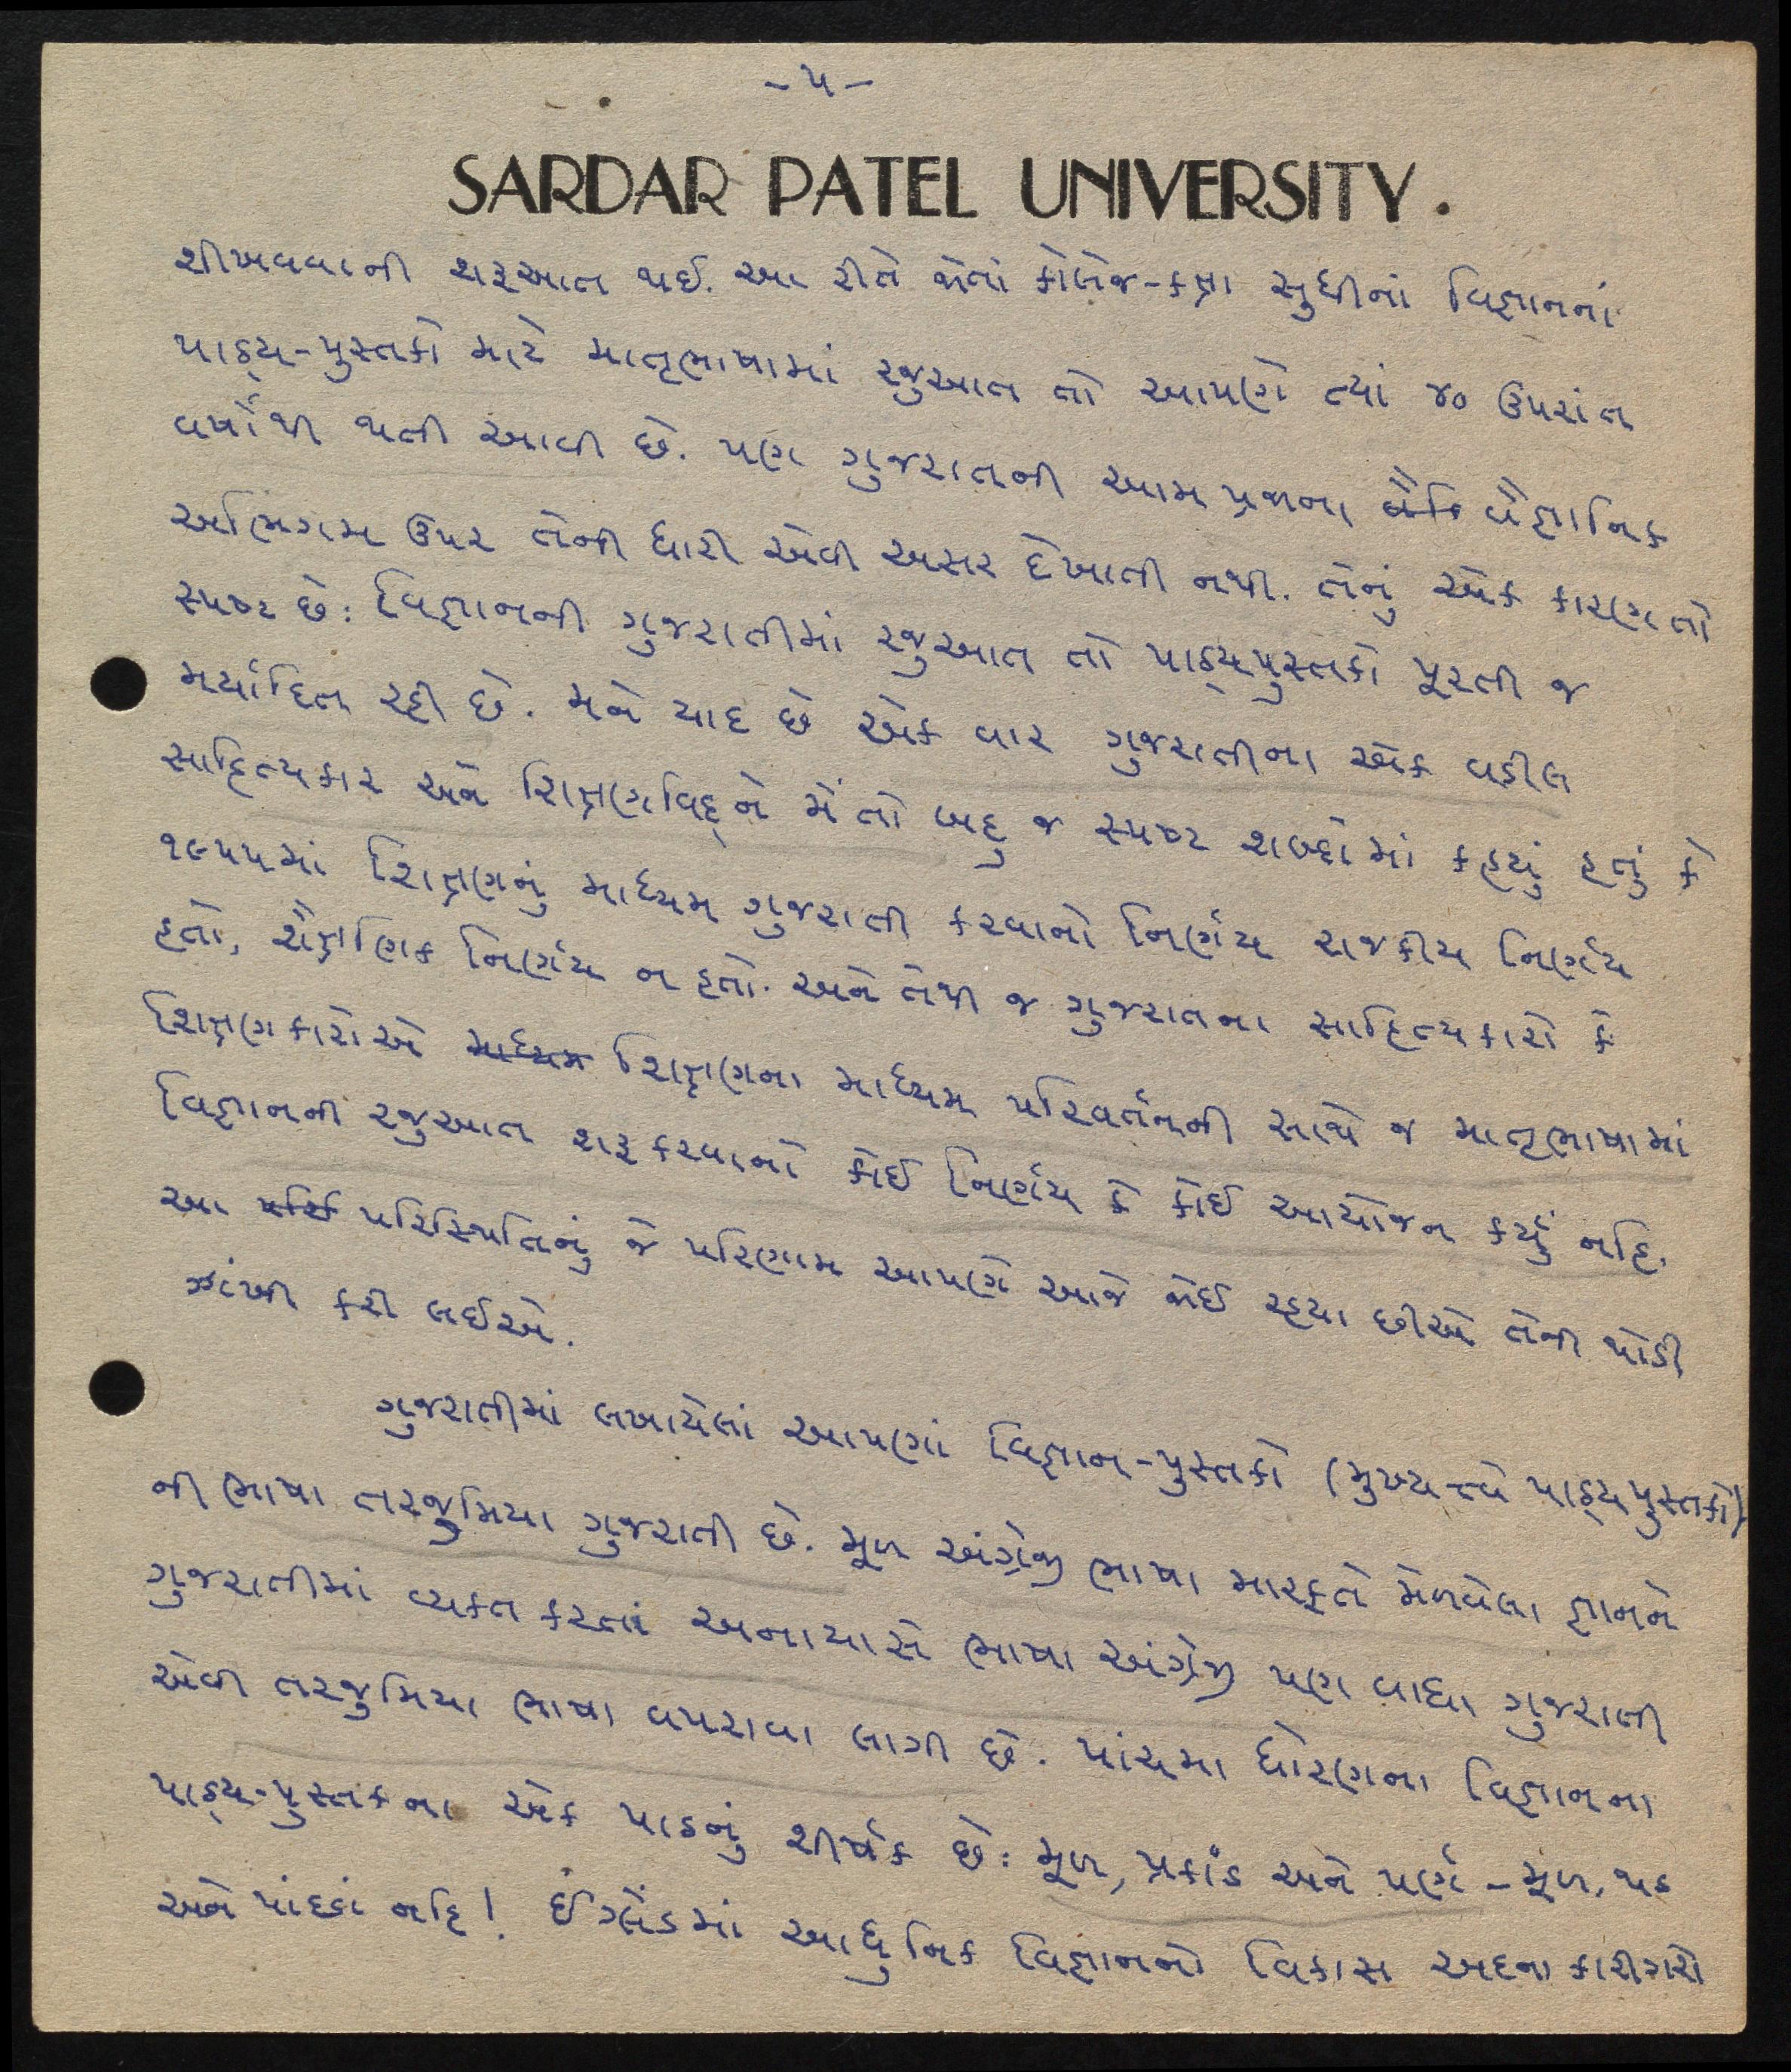 - ૫ -
SARDAR PATEL UNIVERSITY.
શીખવવાની શરૂઆત થઈ. આ રીતે જોતાં કોલેજ-કક્ષા સુધીનાં વિજ્ઞાનનાં
પાઠ્ય-પુસ્તકો માટે માતૃભાષામાં રજુઆત તો આપણે ત્યાં ૪૦ ઉપરાંત
વર્ષોથી થતી આવી છે. પણ ગુજરાતની આમ પ્રજાના વૈજ્ઞાનિક
અભિગમ ઉપર તેની ઘારી એવી અસર દેખાતી નથી. તેનું એક કારણ તો
સ્પષ્ટ છે: વિજ્ઞાનની ગુજરાતીમાં રજુઆત તો પાઠ્યપુસ્તકો પૂરતી જ
મર્યાદિત રહી છે. મને યાદ છે એક વાર ગુજરાતીના એક વડીલ
સાહિત્યકાર અને શિક્ષણવિદ્‌ને મેં તો બહુ જ સ્પષ્ટ શબ્દોમાં કહ્યું હતું કે
૧૯૫૫માં શિક્ષણનું માધ્યમ ગુજરાતી કરવાનો નિર્ણય રાજકીય નિર્ણય
હતો, શૈક્ષણિક નિર્ણય ન હતો. અને તેથી જ ગુજરાતના સાહિત્યકારો કે
શિક્ષણકારોએ માધ્યમ શિક્ષણના માધ્યમ પરિવર્તનની સાથે જ માતૃભાષામાં
વિજ્ઞાનની રજુઆત શરૂ કરવાનો કોઈ નિર્ણય કે કોઈ આયોજન કર્યું નહિ.
આ પરિસ્થિતિનું જે પરિણામ આપણે આજે જોઈ રહ્યા છીએ તેની થોડી
ઝાંખી કરી લઈએ.
ગુજરાતીમાં લખાયેલાં આપણાં વિજ્ઞાન-પુસ્તકો (મુખ્યત્વે પાઠ્યપુસ્તકો)
ની ભાષા તરજુમિયા ગુજરાતી છે. મૂળ અંગ્રેજી ભાષા મારફતે મેળવેલા જ્ઞાનને
ગુજરાતીમાં વ્યક્ત કરતાં અનાયાસે ભાષા અંગ્રેજી પણ વાઘા ગુજરાતી
એવી તરજુમિયા ભાષા વપરાવા લાગી છે. પાંચમા ધોરણના વિજ્ઞાનના
પાઠ્ય-પુસ્તકના એક પાઠનું શીર્ષક છે: મૂળ, પ્રકાંડ અને પર્ણ - મૂળ, થડ
અને પાંદડાં નહિ! ઈંગ્લેંડમાં આધુનિક વિજ્ઞાનનો વિકાસ અદના કારીગરો